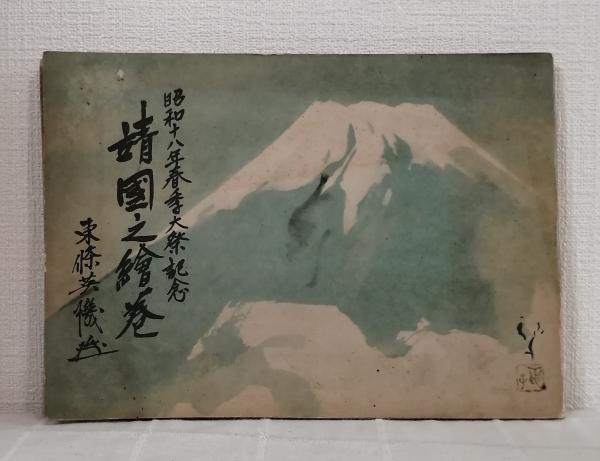 昭和十八年春季大祭記念
靖國之繪巻
東條英機